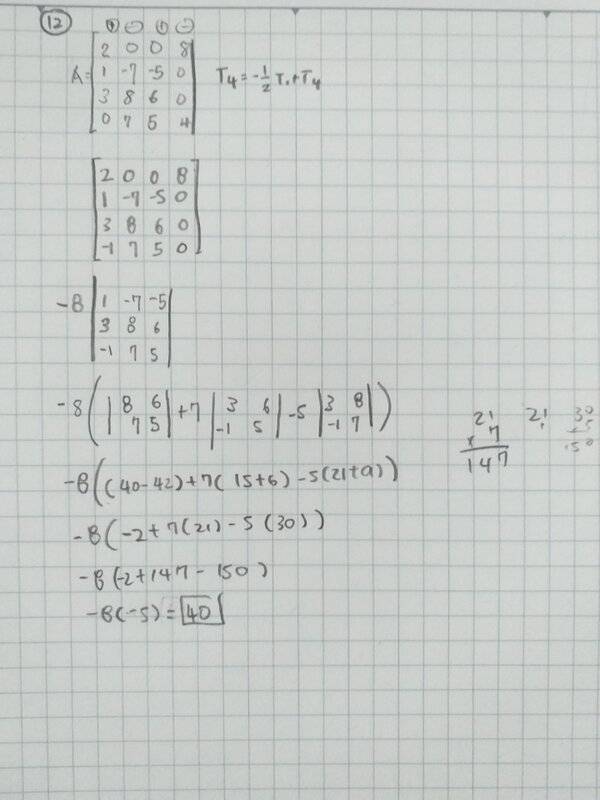 12
⊕ ⊖ ⊕ ⊖
A = [2 0 0 8
1 -7 -5 0
3 8 6 0
0 7 5 4]
r₄ = -½ r₁ + r₄
[2 0 0 8
1 -7 -5 0
3 8 6 0
-1 7 5 0]
-8 |1 -7 -5
3 8 6
-1 7 5|
-8 ( |8 6
7 5| + 7 |3 6
-1 5| - 5 |3 8
-1 7| )
-8 ( (40-42) + 7(15+6) - 5(21+9) )
-8 ( -2 + 7(21) - 5(30) )
-8 (-2 + 147 - 150)
-8(-5) = 40
21
× 7
147
21
30
5
150